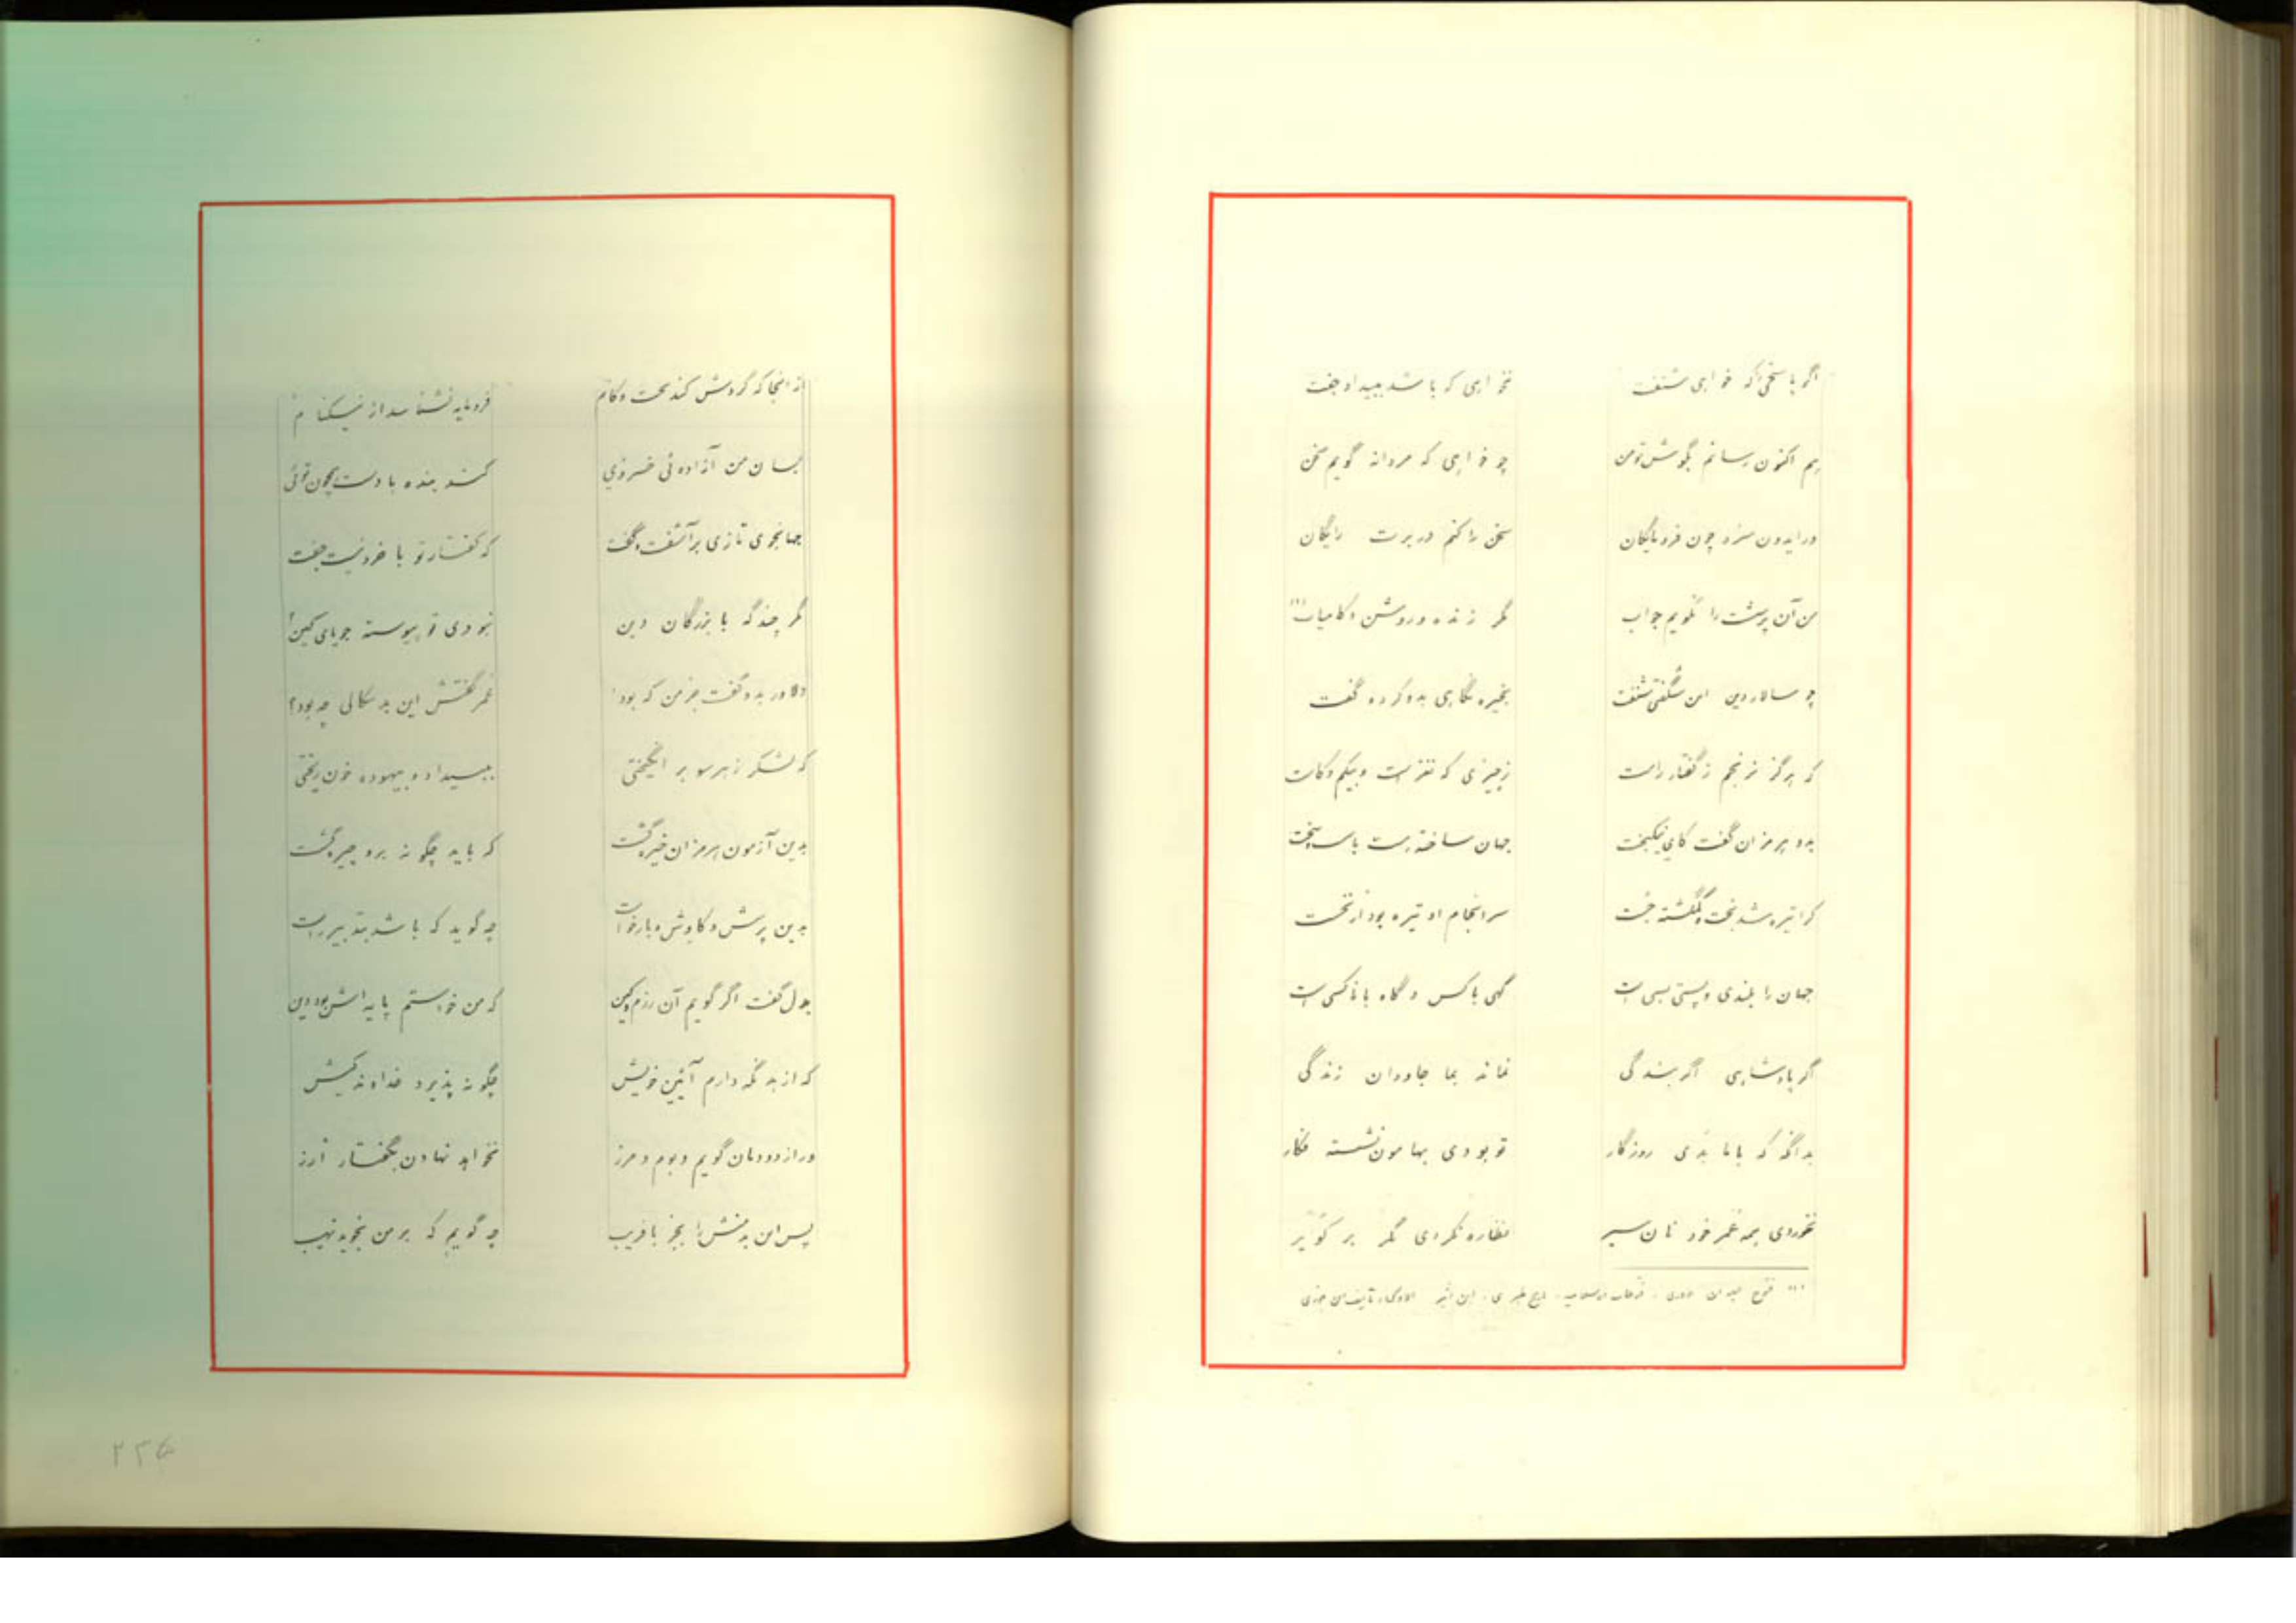 اگر پاسخی را که خواهی شنفت نخواهی که باشد ببیداد جفت
هم اکنون رسانم بگوش تو من چو خواهی که مردانه گویم سخن
ور ایدون سزد چون فرومایگان سخن را کنم در برت رایگان
من آن پرسشت را نگویم جواب مگر زنده و روشن و کامیاب (۱)
چو سالار دین این شگفتی شنفت بخیره نگاهی بدو کرده گفت
که هرگز نرنجم ز گفتار راست ز چیزی که نغز است و بیکم و کاست
بدو هرمزان گفت کای نیکبخت جهان ساخته است با سست و سخت
کرا تیره شد بخت و برگشته جست سرانجام او تیره بود از نخست
جهان را بلندی و پستی بسی است گهی با کس و گاه با ناکسی است
اگر پادشاهی اگر بندگی نماند بما جاودان زندگی
بدانگه که با ما بدی روزگار تو بودی بهامون نشسته فکار
نخوردی بهمه عمر خود نان سیر نظاره نکردی مگر بر کویر
(۱) فتوح البلدان بلاذری - فتوحات اسلامیه - تاریخ طبری - ابن اثیر
از آنجا که گردش کند بخت و کام فرومایه نشناسد از نیکنام
بسان من آزاده ئی خسروی کند بنده با دست همچون توئی
جهانجوی تازی برآشفت و گفت که گفتار تو با خرد نیست جفت
مگر چند گه با بزرگان دین نبودی تو پیوسته جویای کین؟
دلاور بدو گفت جز من که بود؟ عمر گفتش این بد سکالی چه بود؟
که لشکر ز هر سو بر انگیختی ببیداد و بیهوده خون ریختی
بدین آزمون هرمزان خیره گشت که باید چگونه برو چیره گشت
بدین پرسش و کاوش و بازخواست چه گوید که باشد بتدبیر راست
بدل گفت اگر گویم آن رزم و کین که من خواستم پایه اش بود دین
که از بد نگه دارم آئین خویش چگونه پذیرد خداوند کیش
ور از دودمان گویم و بوم و مرز نخواهد نهادن بگفتار ارز
پس این بد منش را بجز با فریب چه گویم که بر من نجوید نهیب
۲۳۵